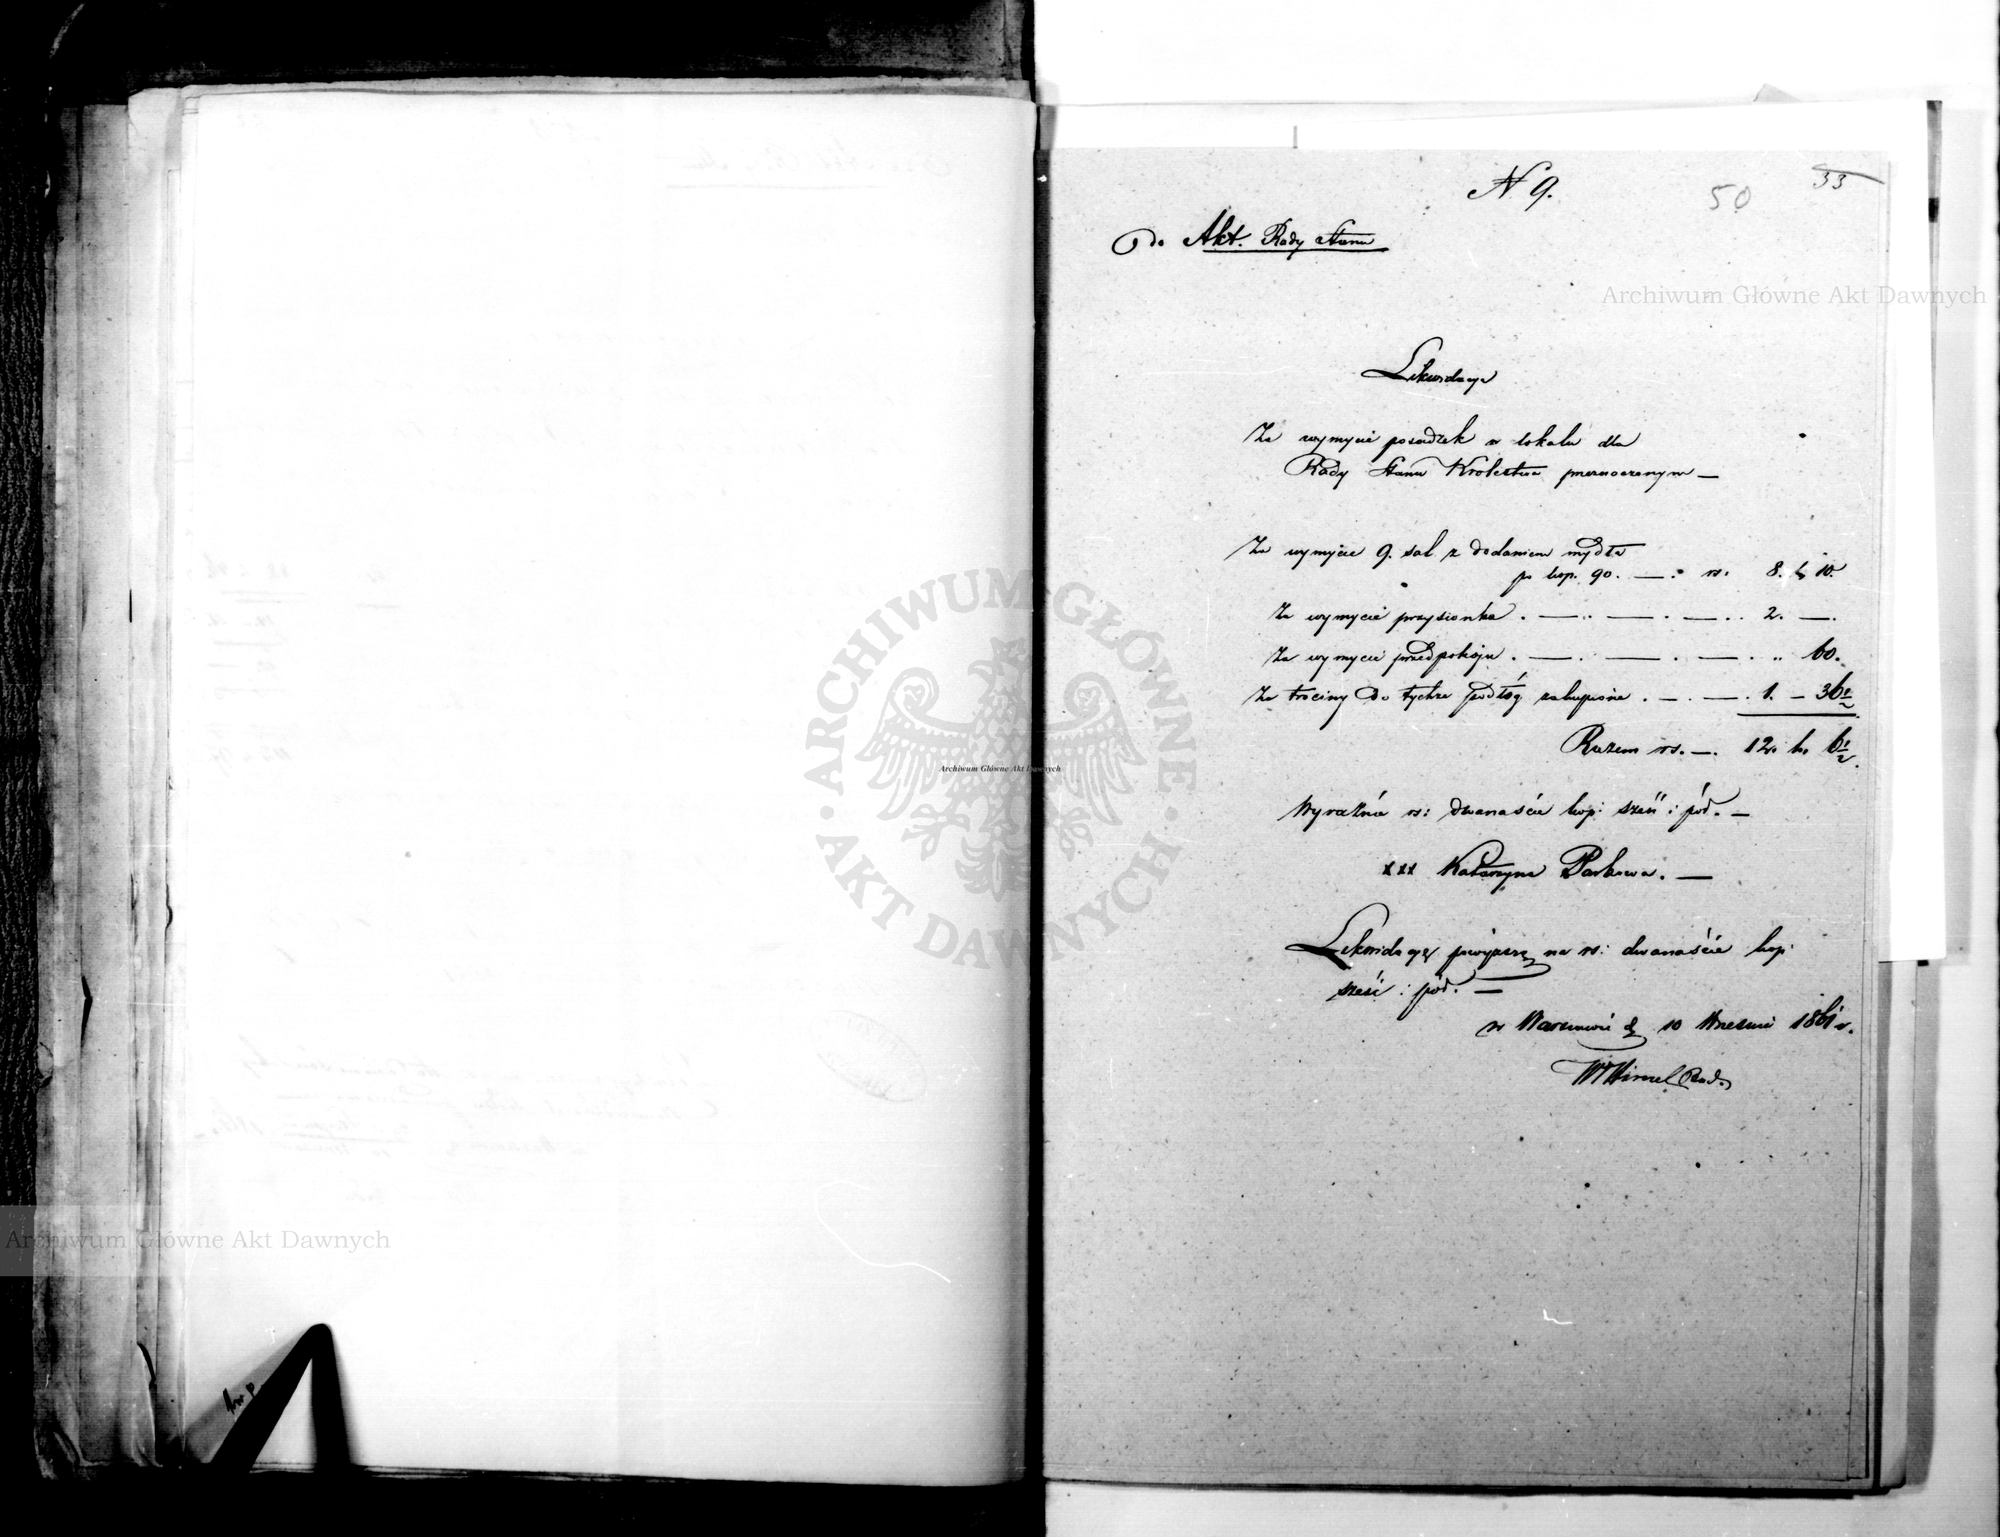 N 9.
50
33
Do Akt. Rady Stanu
Archiwum Główne Akt Dawnych
Likwidacya
Za wymycie posadzek w lokalu dla
Rady Stanu Krolestwa przeznaczonym —
Za wymycie 9. sal z dodaniem mydła
po kop. 90. — . rs. 8. k 10.
Za wymycie przysionka . — . — . — . . 2. — .
Za wymycie przedpokoju . — . — . — . „ 60.
Za trociny do tychże podłóg zakupione . — . — . 1. — 36 1/2
Razem rs. — . 12. k. 6 1/2.
Wyraźnie rs: dwanaście kop: sześć i pół. —
xxx Katarzyna —
Likwidacyę powyższą na rs: dwanaście kop:
sześć i pół. —
w Warszawie d 10 Wrześni 1861 r.
ARCHIWUM GŁÓWNE AKT DAWNYCH
Archiwum Główne Akt Dawnych
Archiwum Główne Akt Dawnych